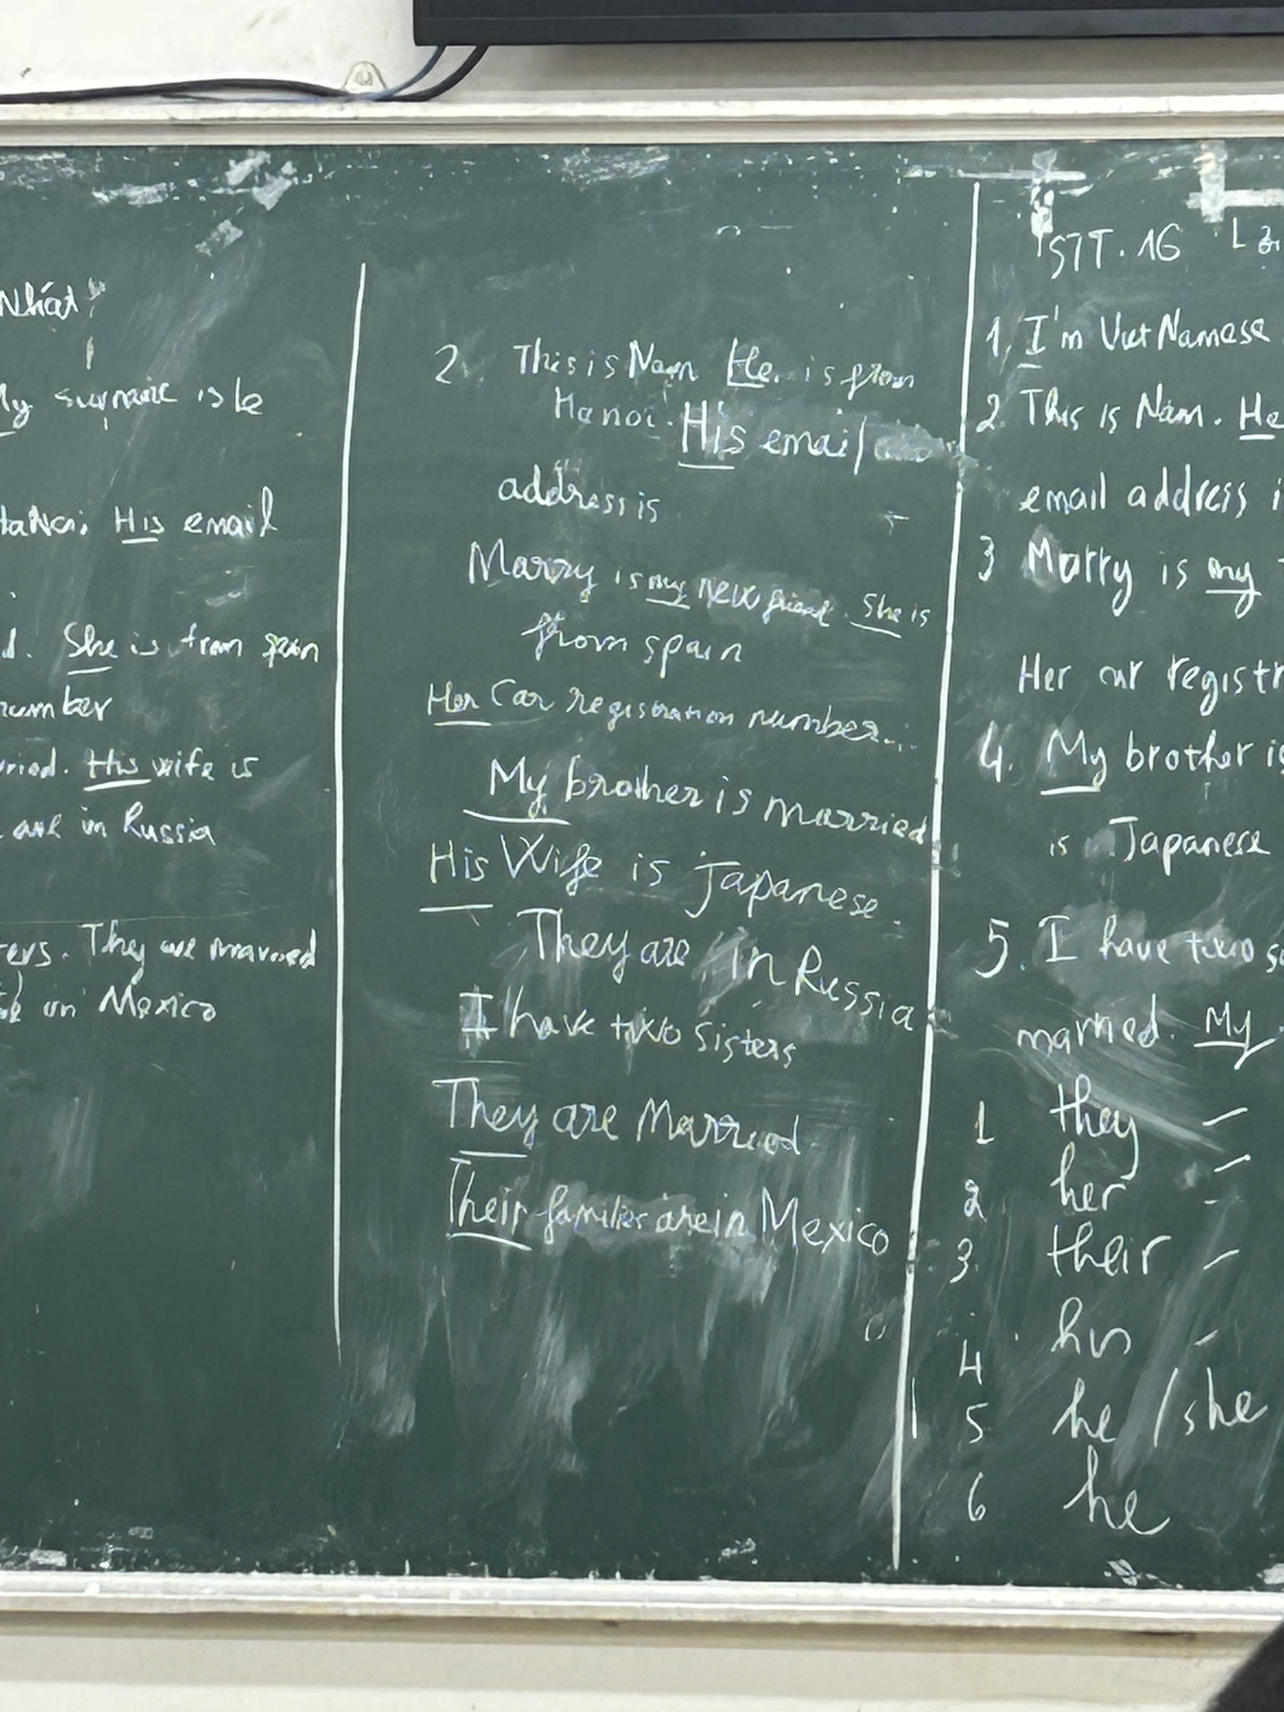 Nhật
My surname is Le
HaNoi, His email
d. She is from spain
number
rried. His wife is
are in Russia
ters. They are married
in Mexico
2. This is Nam He. is from
Hanoi. His email
address is
Marry is my new friend. She is
from spain
Her Car registration number...
My brother is married
His Wife is japanese.
They are in Russia
I have two sisters
They are Married
Their familier are in Mexico
STT. 16
1. I'm VietNamese
2. This is Nam. He
email address i
3 Marry is my
Her car registr
4. My brother is
is Japanese
5. I have two s
married. My
1 they –
2 her –
3. their –
4 his –
5 he / she
6 he